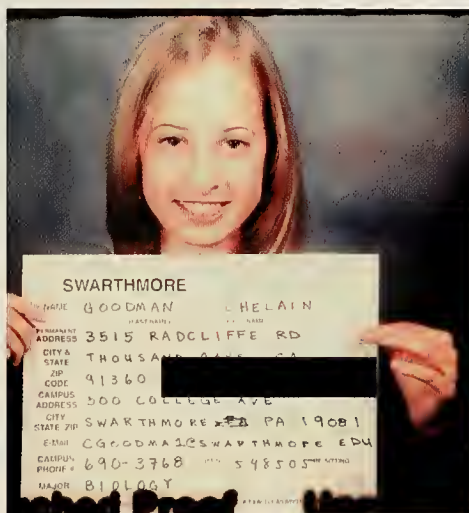 SWARTHMORE
NAME GOODMAN HELAIN
PERMANENT ADDRESS 3515 RADCLIFFE RD
CITY & STATE THOUSAND CA
ZIP CODE 91360
CAMPUS ADDRESS 500 COLLEGE AVE
CITY STATE ZIP SWARTHMORE PA 19081
E-Mail CGOODMA1@SWARTHMORE EDU
CAMPUS PHONE # 690-3768 548505 SITTING
MAJOR BIOLOGY